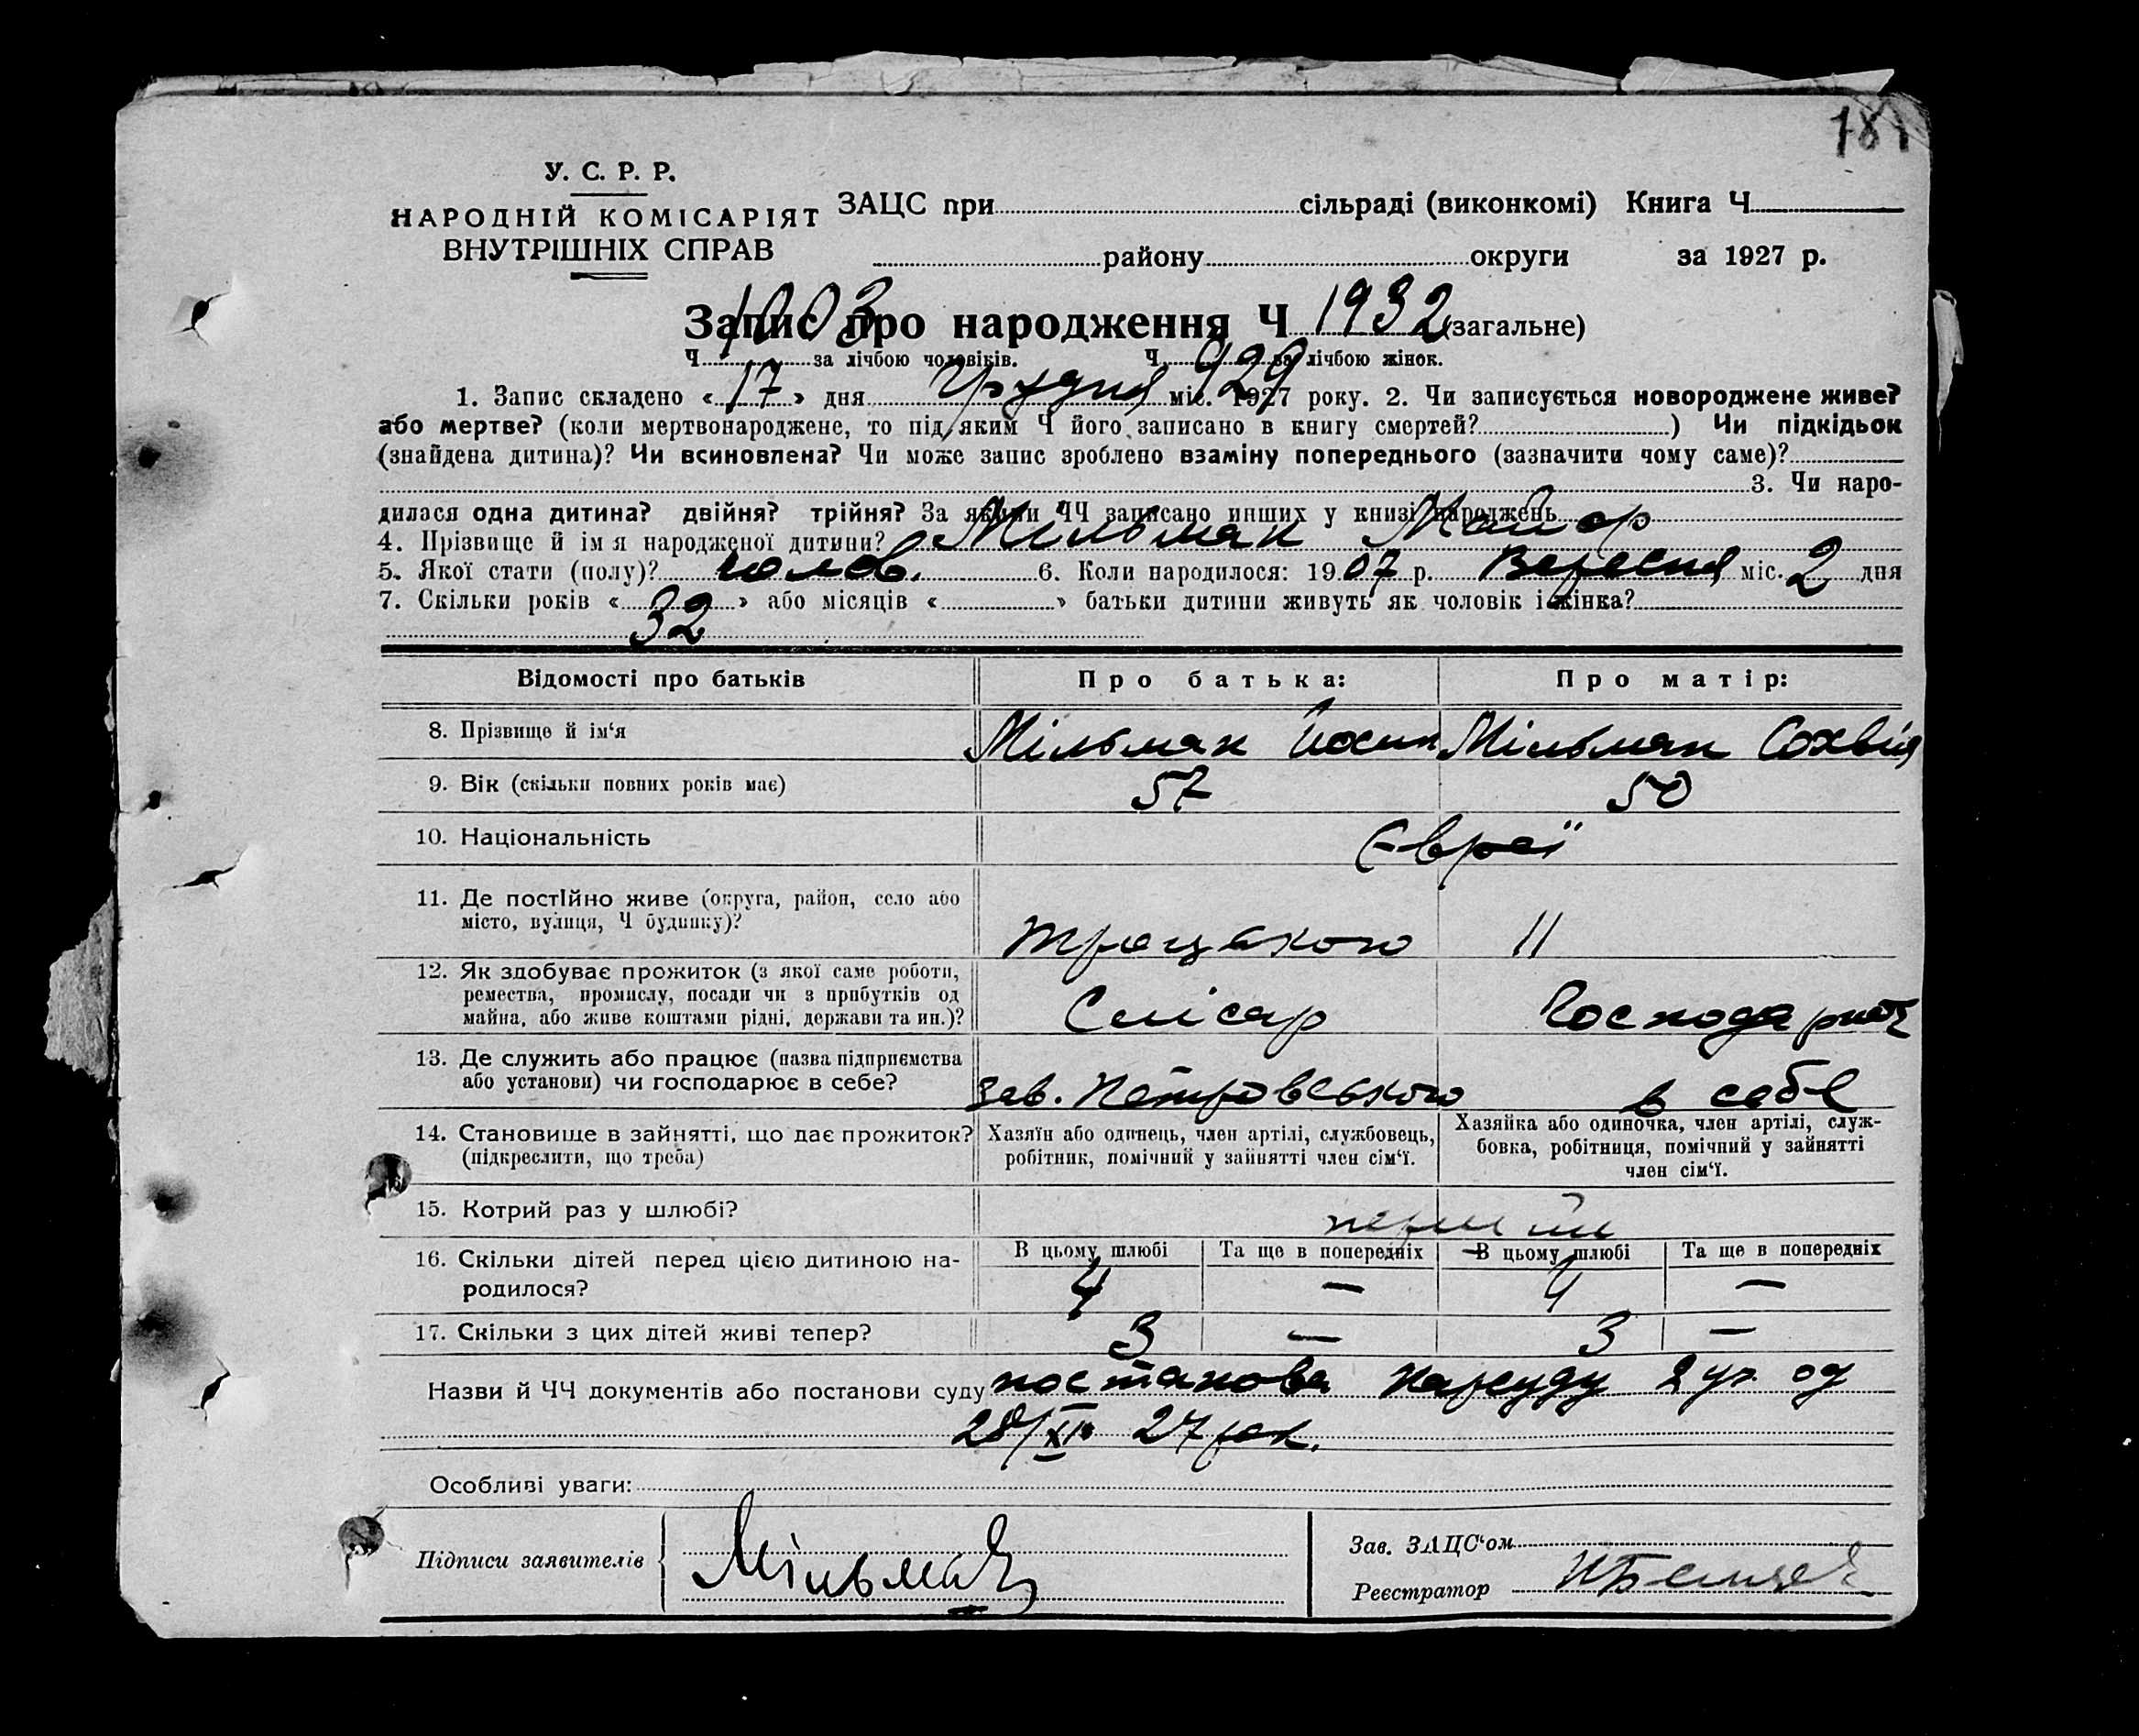 У. С. Р. Р.
НАРОДНІЙ КОМІСАРІЯТ
ВНУТРІШНІХ СПРАВ
ЗАЦС при сільраді (виконкомі) Книга Ч
району округи за 1927 р.
Запис про народження Ч 1932 (загальне)
Ч 1003 за лічбою чоловіків. Ч 929 за лічбою жінок.
1. Запис складено « 17 » дня Грудня міс. 1927 року. 2. Чи записується новороджене живе?
або мертве? (коли мертвонароджене, то під яким Ч його записано в книгу смертей? ) Чи підкідьок
(знайдена дитина)? Чи всиновлена? Чи може запис зроблено взаміну попереднього (зазначити чому саме)?
3. Чи наро-
дилася одна дитина? двійня? трійня? За якими ЧЧ записано инших у книзі народжень
4. Прізвище й ім я народженої дитини? Мільман
5. Якої стати (полу)? чолов. 6. Коли народилося: 1907 р. Вересня міс. 2 дня
7. Скільки років « 32 » або місяців « » батьки дитини живуть як чоловік і жінка?
Відомості про батьків Про батька: Про матір:
8. Прізвище й ім‘я Мільман Йосип Мільман Сохвія
9. Вік (скільки повних років має) 57 50
10. Національність Євреї
11. Де постІйно живе (округа, район, село або
місто, вулиця, Ч будинку)? Троцького 11
12. Як здобуває прожиток (з якої саме роботи,
ремества, промислу, посади чи з прибутків од
майна, або живе коштами рідні, держави та ин.)? Слісар
13. Де служить або працює (назва підприємства
або установи) чи господарює в себе? зав. Петровського в себе
14. Становище в зайнятті, що дає прожиток?
(підкреслити, що треба)
Хазяїн або одинець, член артілі, службовець,
робітник, помічний у зайнятті член сім‘ї.
Хазяйка або одиночка, член артілі, служ-
бовка, робітниця, помічний у зайнятті
член сім‘ї.
15. Котрий раз у шлюбі? перший
В цьому шлюбі Та ще в попередніх В цьому шлюбі Та ще в попередніх
16. Скільки дітей перед цією дитиною на-
родилося? 4 — 4 —
17. Скільки з цих дітей живі тепер? 3 — 3 —
Назви й ЧЧ документів або постанови суду постанова Нарсуду 2 уч. од
28/XI 27 рок.
Особливі уваги:
Підписи заявителів Мільман
Зав. ЗАЦС‘ом
Реєстратор